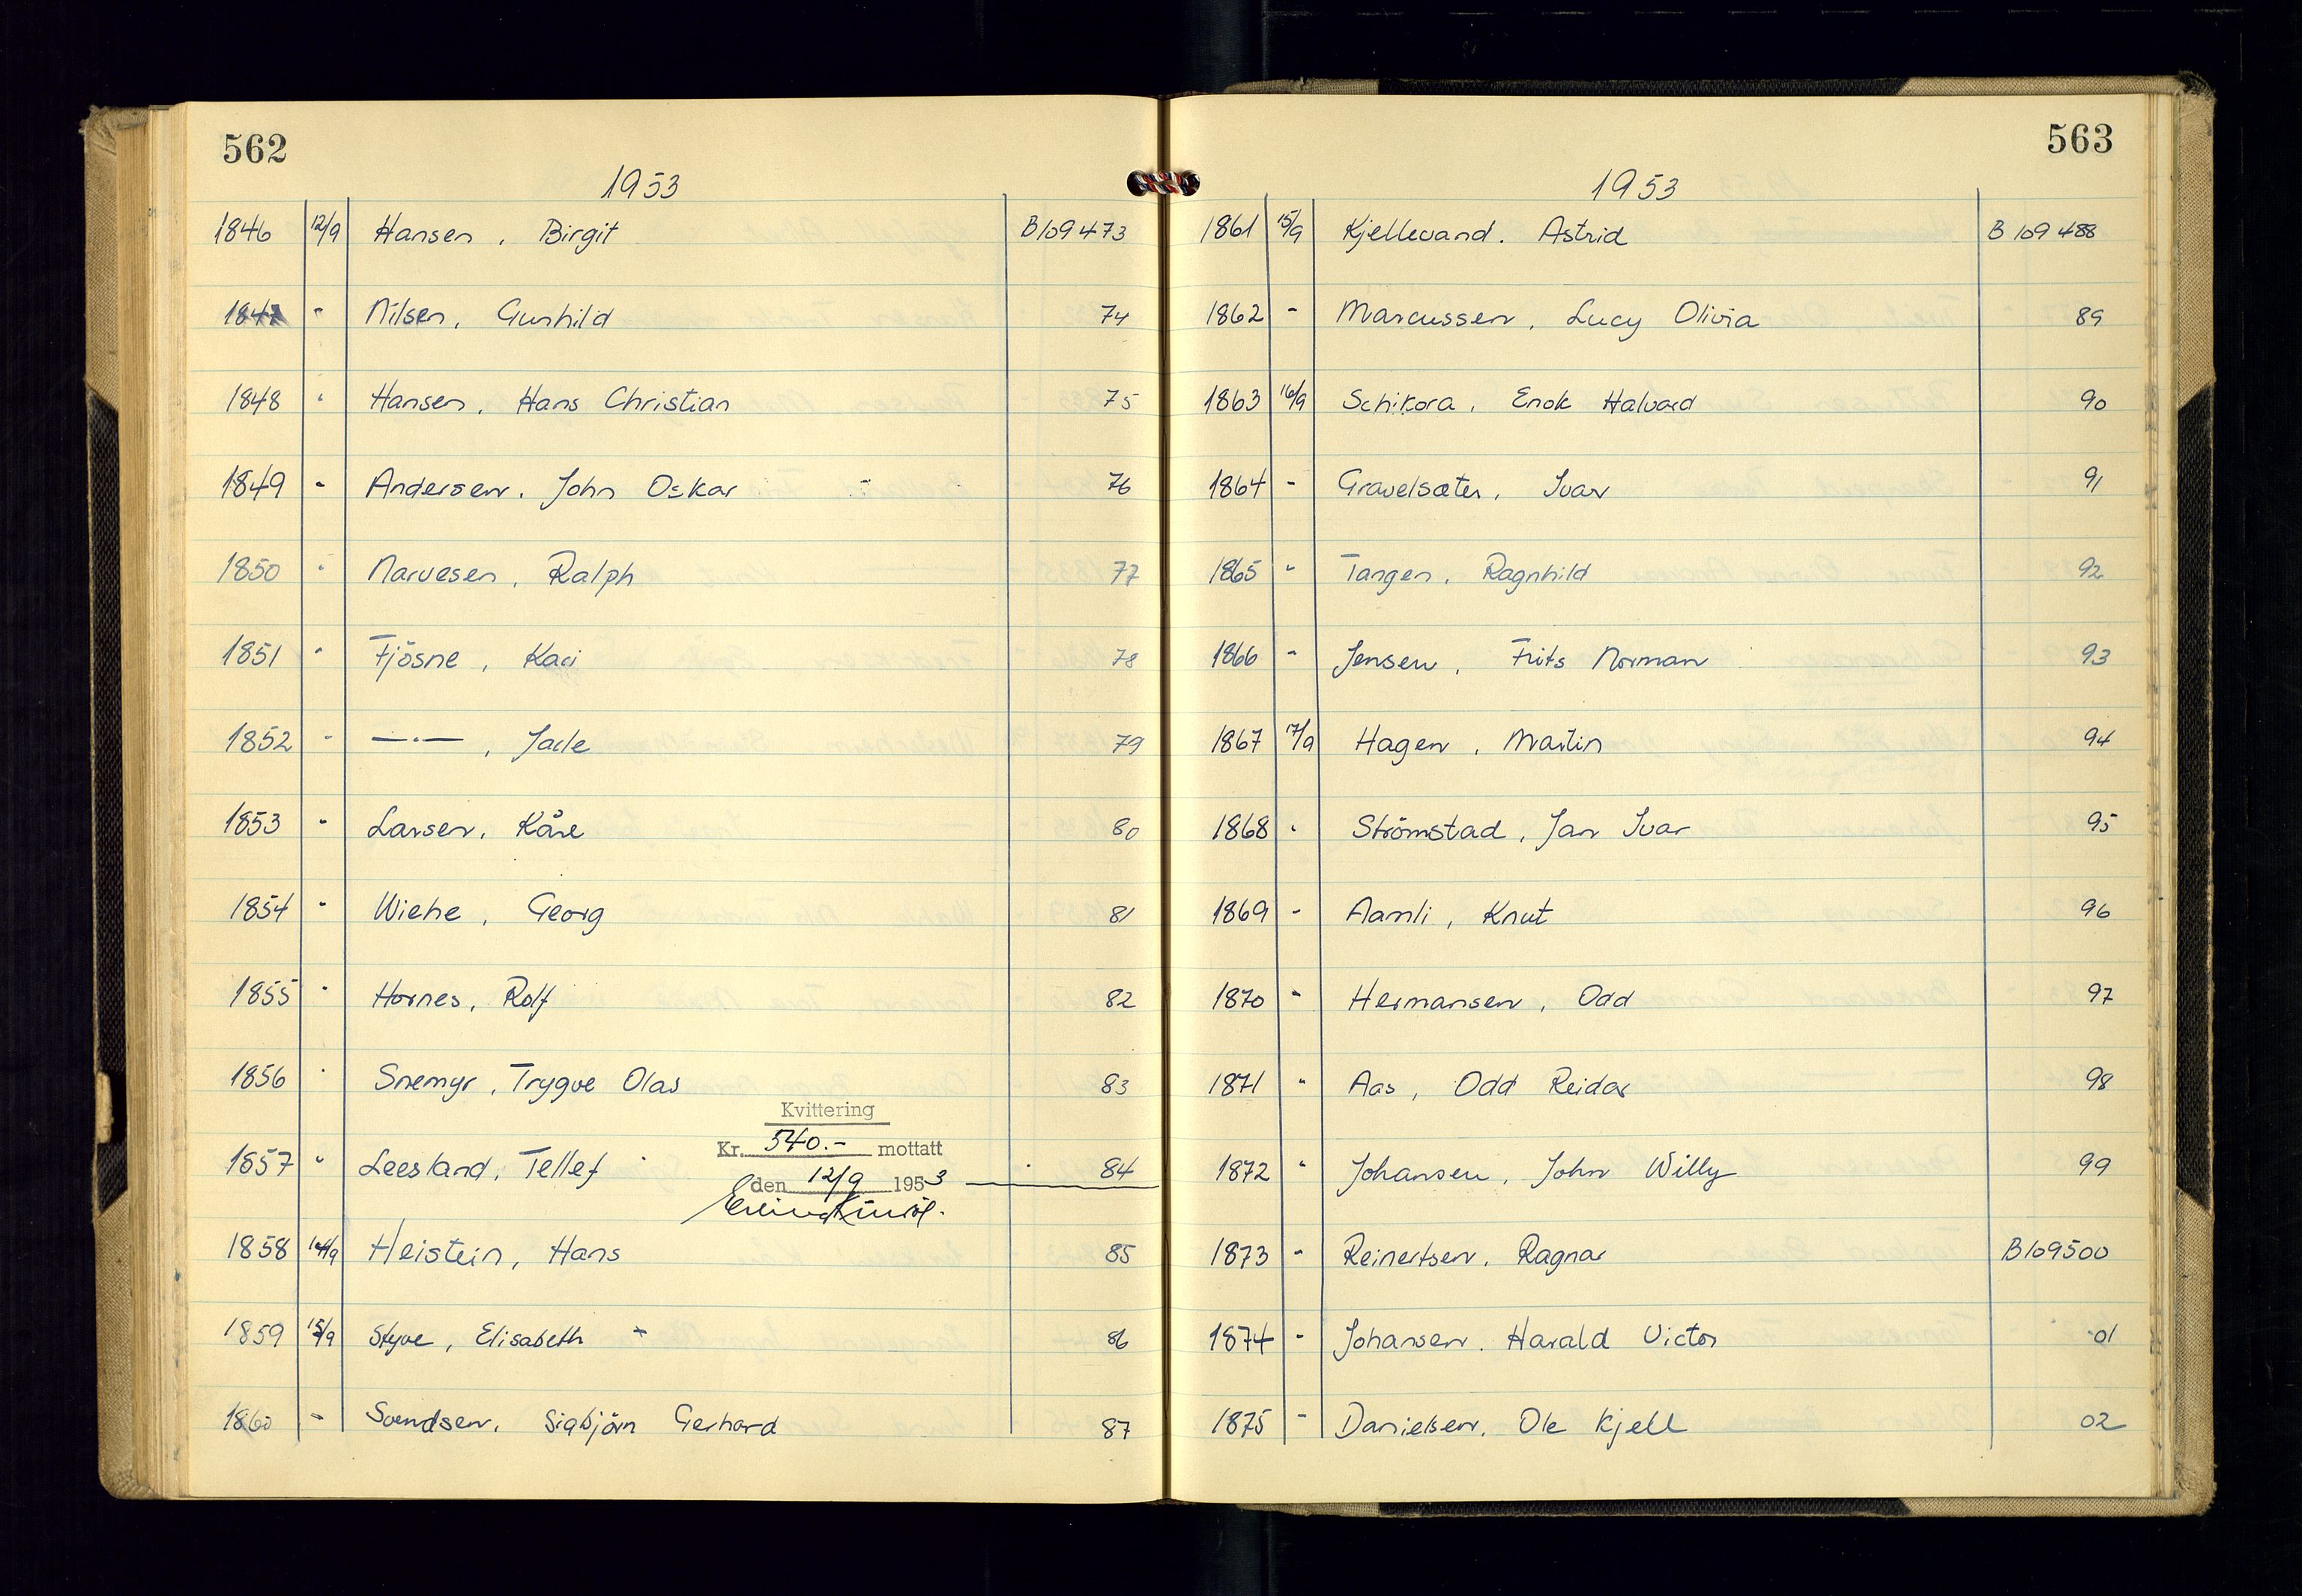 562
1953
1846 12/9 Hansen, Birgit B109473
1847 " Nilsen, Gunhild 74
1848 " Hansen, Hans Christian 75
1849 " Andersen, John Oskar 76
1850 " Narvesen, Ralph 77
1851 " Fjösne, Kari 78
1852 " —"—, Jarle 79
1853 " Larsen, Kåre 80
1854 " Wiehe, Georg 81
1855 " Hornes, Rolf 82
1856 " Snemyr, Trygve Olas 83
Kvittering
Kr. 540.- mottatt
1857 " Leesland, Tellef 84
den 12/9 1953
1858 14/9 Heistein, Hans 85
1859 15/9 Styve, Elisabeth 86
1860 " Svendsen, Sigbjörn Gerhard 87
563
1953
1861 15/9 Kjellevand. Astrid B109488
1862 " Marcussen, Lucy Olivia 89
1863 16/9 Schikora, Enok Halvard 90
1864 " Gravelsæter, Ivar 91
1865 " Tangen, Ragnhild 92
1866 " Jensen, Frits Norman 93
1867 17/9 Hagen, Martin 94
1868 " Strömstad, Jan Ivar 95
1869 " Aamli, Knut 96
1870 " Hermansen, Odd 97
1871 " Aas, Odd Reidar 98
1872 " Johansen, John Willy 99
1873 " Reinertsen, Ragnar B109500
1874 " Johansen. Harald Victor 01
1875 " Danielsen, Ole Kjell 02